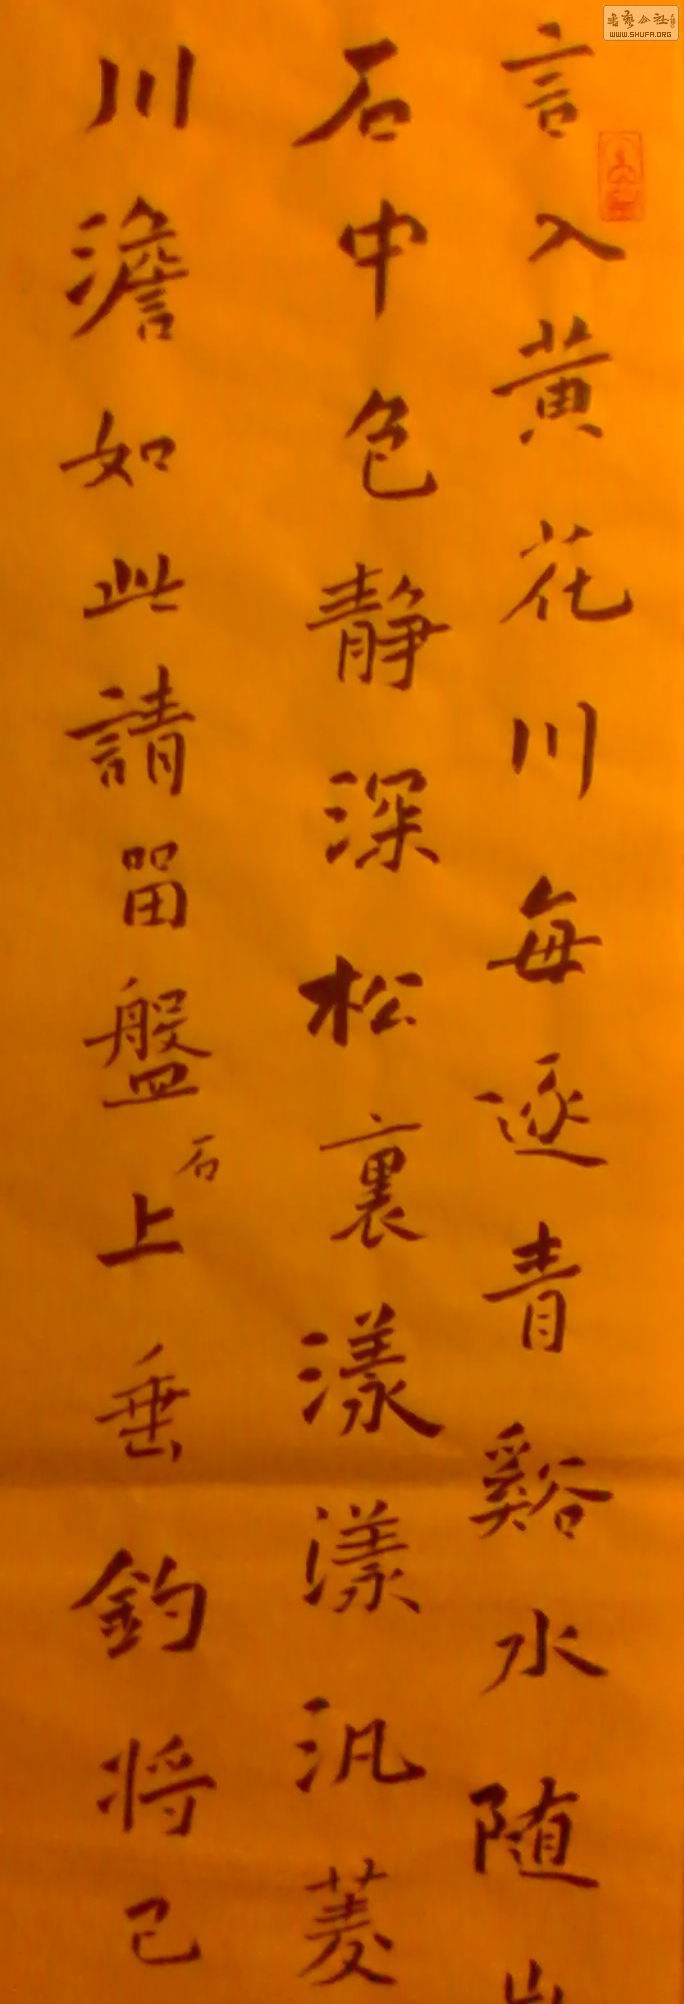 言入黄花川每逐青谿水随山
石中色静深松裏漾漾汎菱
川澹如此請留盤石上垂釣将己
WWW.SHUFA.ORG